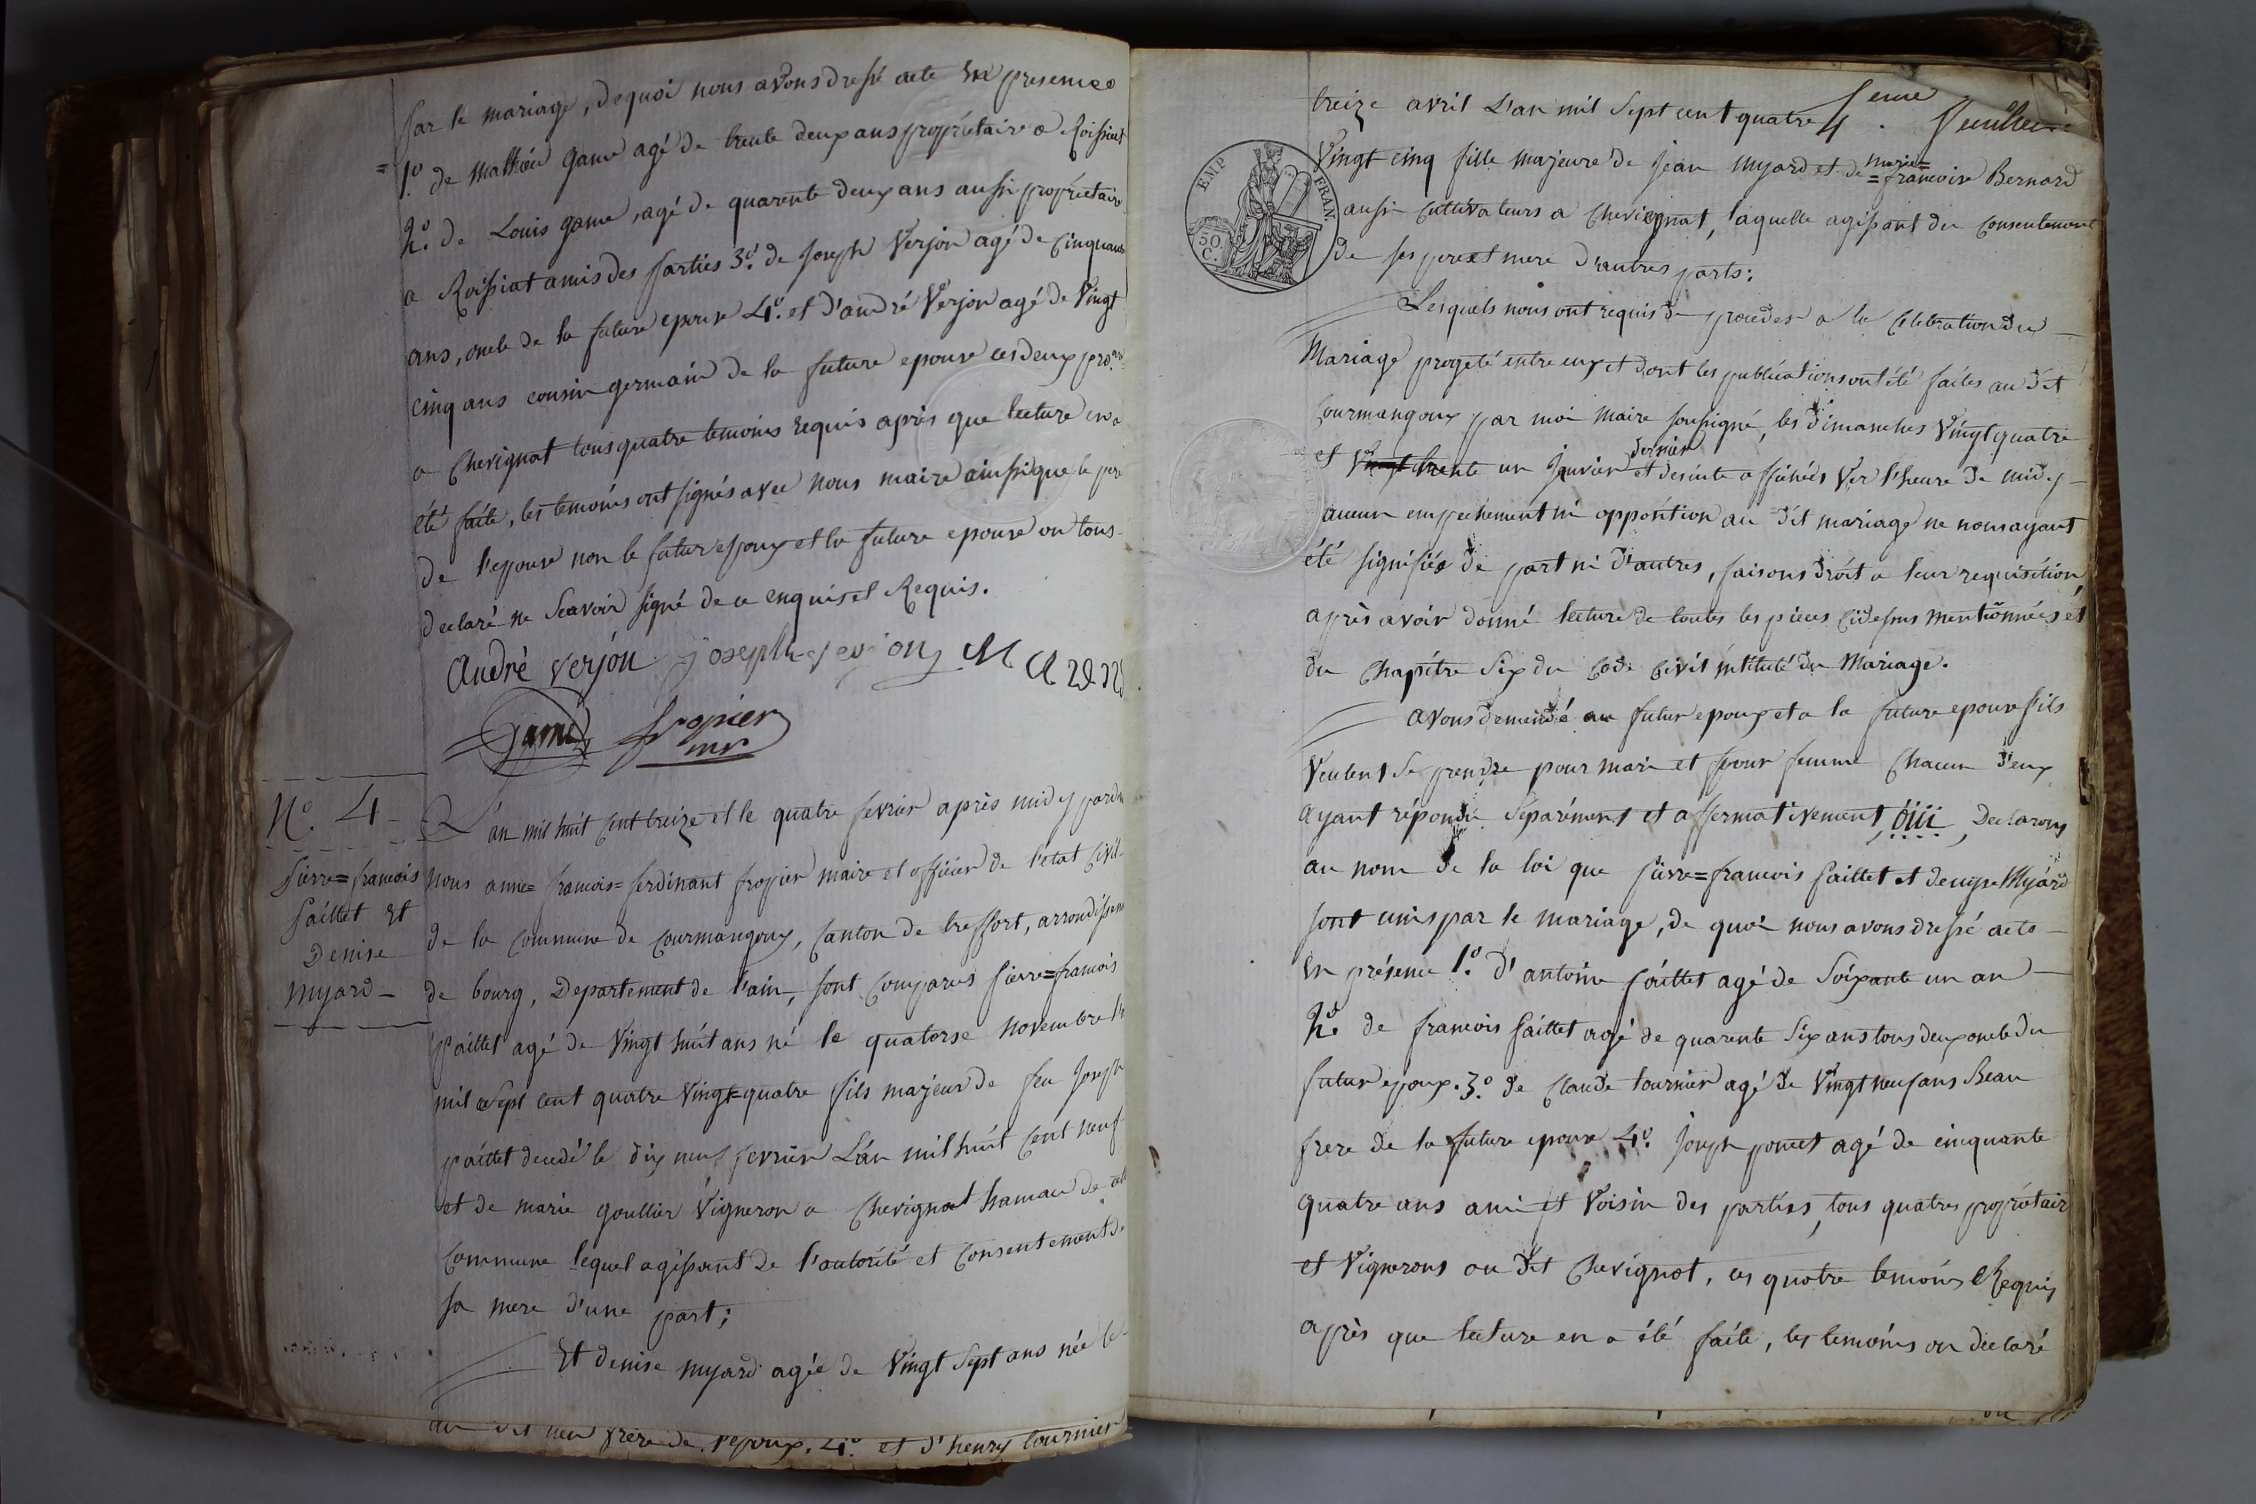 par le mariage, dequoi nous avons dressé acte En presence
= 1º. de Mathieu game agé de trente deux ans propriétaire a Roissiat
2º. de Louis game, agé de quarente deux ans aussi propriétaire
a Roissiat amis des parties 3º. de Joseph Verjon agé de Cinquante
ans, oncle de la future epouse 4º. et d'andré Verjon agé de Vingt
cinq ans cousin germain de la future epouse ces deux prores
a Chevignat tous quatre temoins requis après que lecture en a
été faite, les temoins ont signés avec nous maire ainsi que le pere
de l'epouse non le futur epoux et la future epouse on tous
declaré ne Scavoir signé de ce enquis et Requis.
André Verjon joseph verjon M
Game fropier
mre
Nº. 4
Pierre=francois
paillet Et
Denise
Myard
L'an mil huit Cent treize et le quatre fevrier après midy pard
nous anne= francois= ferdinant fropier maire et officier de l'etat Civil
de la Commune de Courmangoux, Canton de treffort, arrondissem
de bourg, Departement de l'ain, sont Comparus pierre=francois
paillet agé de Vingt huit ans né le quatorse Novembre
mil Sept cent quatre Vingt=quatre fils majeur de feu Joseph
paillet decedé le dix neuf fevrier L'an mil huit Cent neuf
et de marie goullier Vigneron a Chevignat hamau de
Commune lequel agissant de l'autorité et Consentement de
sa mere d'une part;
Et denise myard agée de Vingt Sept ans née le
au dit lieu frere de l'epoux. 4º. et d'henry tournier
4 . eme feuillet
treize avril L'an mil Sept cent quatre
EMP FRAN.
50. C.
Vingt cinq fille majeure de jean myard et de =marie= francoise Bernard
aussi Cultivateurs a Chevignat, laquelle agissant du Consentement
de ses pere et mere D'autres parts;
Lesquels nous ont requis de proceder a la Celebration du
Mariage progeté entre eux et dont les publications ont été faites au dit
Courmangoux par moi maire soussigné, les Dimanches Vingt quatre
et trente un Janvier dernier et desuite affichées Ver l'heure de midy
aucun empechement ni opposition au dit mariage ne nous ayant
été signifiés de part ni d'autres, faisons droit a leur requisition
après avoir donné lecture de toutes les pieces cidessus mentionnées et
du Chapitre Six du Code Civil intitulé du Mariage.
avons demendé au futur epoux et a la future epouse s'ils
Veulent se prendre pour mari et pour femme Chacun d'eux
ayant répondu Séparément et affermativement, oüi, Declarons
au nom de la loi que pierre=francois paillet et denise Myard
sont unis par le mariage, de quoi nous avons dressé acte
En présence 1º. d'antoine paillet agé de Soixante un an
2º. de francois paillet agé de quarente Six ans tous deux oncle du
futur epoux. 3º. de Claude tournier agé de Vingt neuf ans Beau
frere de la future epouse 4º. Joseph poncet agé de cinquante
quatre ans ami et Voisin des parties, tous quatres propriétair
et Vignerons au dit Chevignat, ces quatre temoins Requis
après que lecture en a été faite, les temoins on declaré